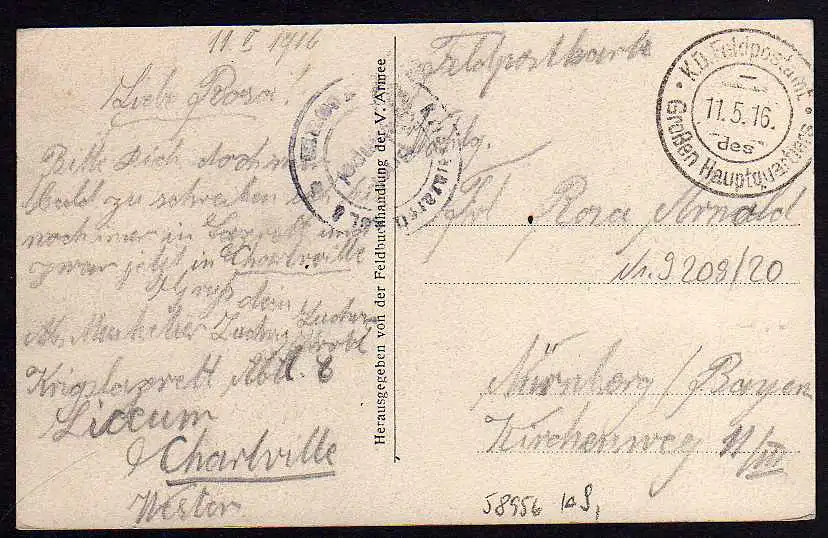 11. V 1916
Liebe Rosa!
Bitte Dich doch
zu schreiben
noch immer in Lazarett und
zwar jetzt in Charlville
Gruß dein Ludwig
Abs. Ludwig
Krigslazarett Abtl. 8
Liceum
Charlville
Westen
Herausgegeben von der Feldbuchhandlung der V. Armee
Feldpostkarte
K.D. Feldpostamt
11.5.16.
des
Großen Hauptquartiers
Frl Rosa Arnold
Nr. 9208/20
Nürnberg / Bayern
Kirchenweg 11/III
58956